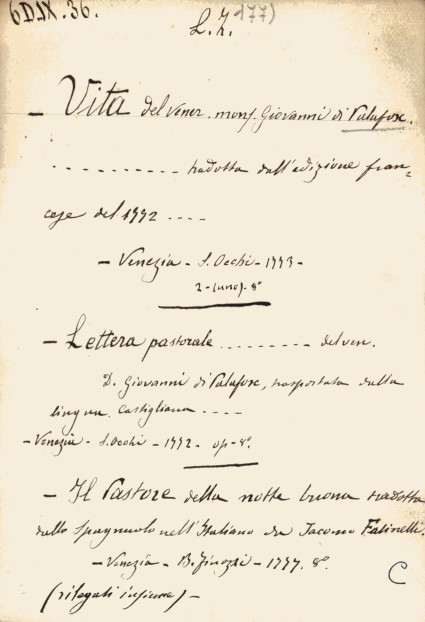 6D.IX.36.
L. Z. 177)
- Vita del Vener. mons. Giovanni di Palafox.
- - - - - - - - - - tradotta dall'edizione fran=
cese del 1772 - - - -
- Venezia - S. Occhi - 1773 -
2 - (uno) - 8°
- Lettera pastorale - - - - - - - - del ven.
D. Giovanni di Palafox, trasportata dalla
lingua Castigliana - - - -
- Venezia - S. Occhi - 1772 - op - 8°.
- Il Pastore della notte buona tradotta
dallo Spagnuolo nell'Italiano da Iacomo Fatinelli.
- Venezia - B. - 1777. 8°.
(rilegati insieme) -
C